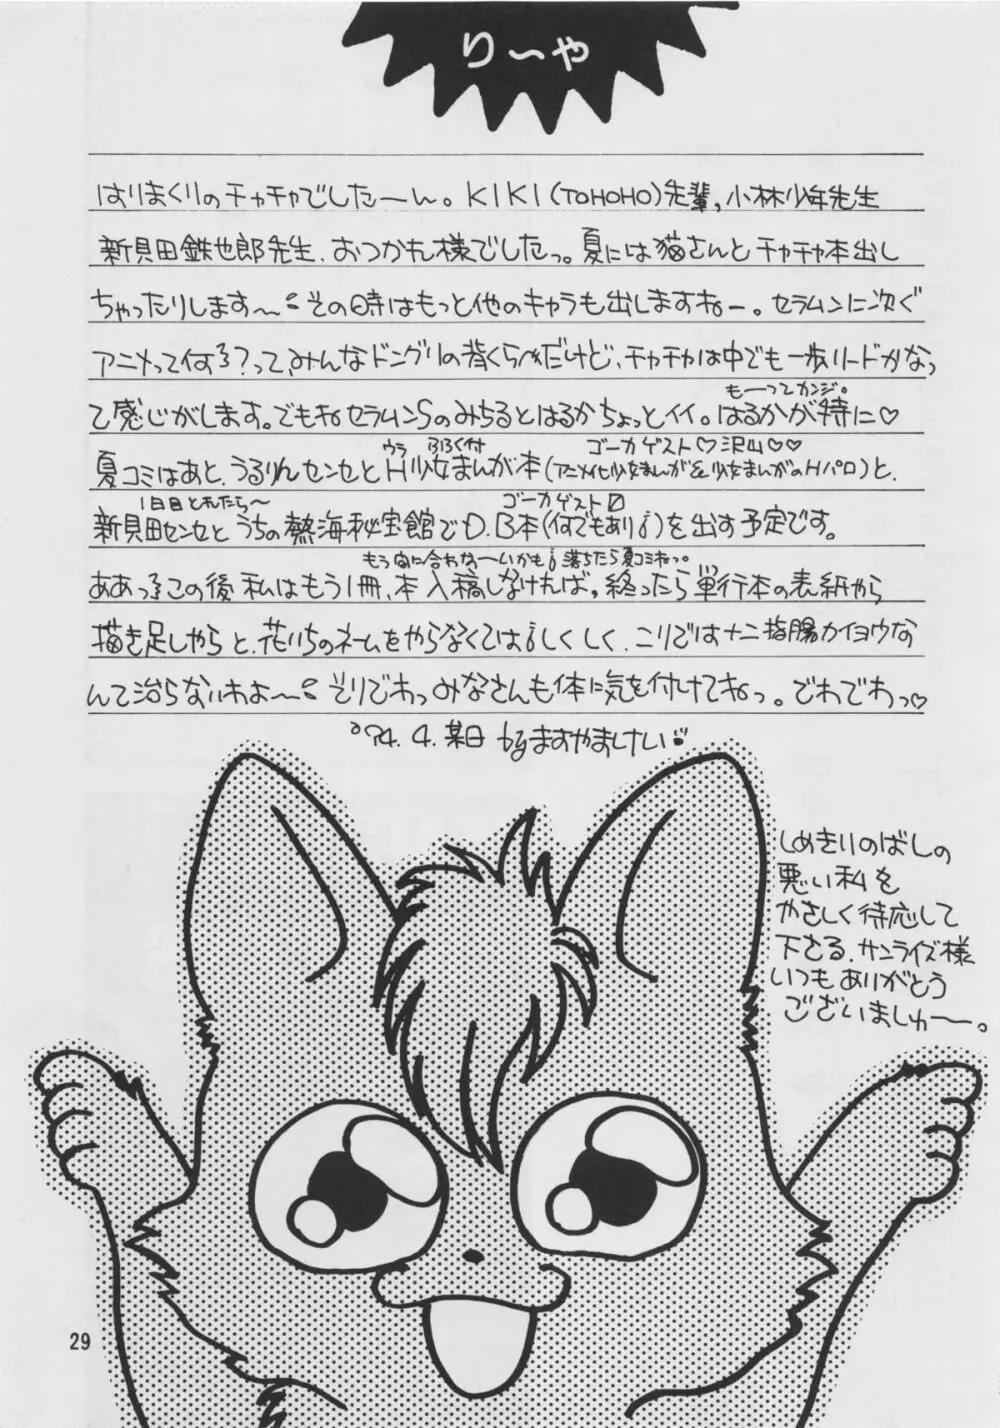 りーや
はりまくりのチャチャでしたーん。KIKI(TOHOHO)先輩,小林少年先生
新貝田鉄也郎先生、おつかれ様でしたっ。夏には猫さんとチャチャ本出し
ちゃったりします〜 その時はもっと他のキャラも出しますねー。セラムンに次ぐ
アニメって何ろ?って、みんなドングリの背くらべだけど、チャチャは中でも一歩リードかなっ
て感じがします。でもね セラムンSのみちるとはるかちょっとイイ。はるかが特に♡
も——ってカンジ。
夏コミはあと、うるりんセンセとH少女まんが本(アニメイセ少女まんが&少女まんがのHパロ)と、
ウラ ふろく付 ゴーカゲスト♡沢山♡♡
新貝田センセとうちの熱海秘宝館でD.B本(何でもあり!)を出す予定です。
1日目とれたら〜 ゴーカゲスト
ああっ この後私はもう1冊、本入稿しなければ。終ったら単行本の表紙から
もう間に合わな〜いかも! 落ちたら夏コミねっ。
描き足しやらと、花いちのネームをやらなくては!しくしく、こりでは十二指腸カイヨウな
んて治らないわよ〜 そりでわっみなさんも体に気を付けてねっ。でわでわっ♡
'94.4.某日 byますやましけい
しめきりのばしの
悪い私を
やさしく待応して
下さる、サンライズ様
いつもありがとう
ございましゅ〜。
29